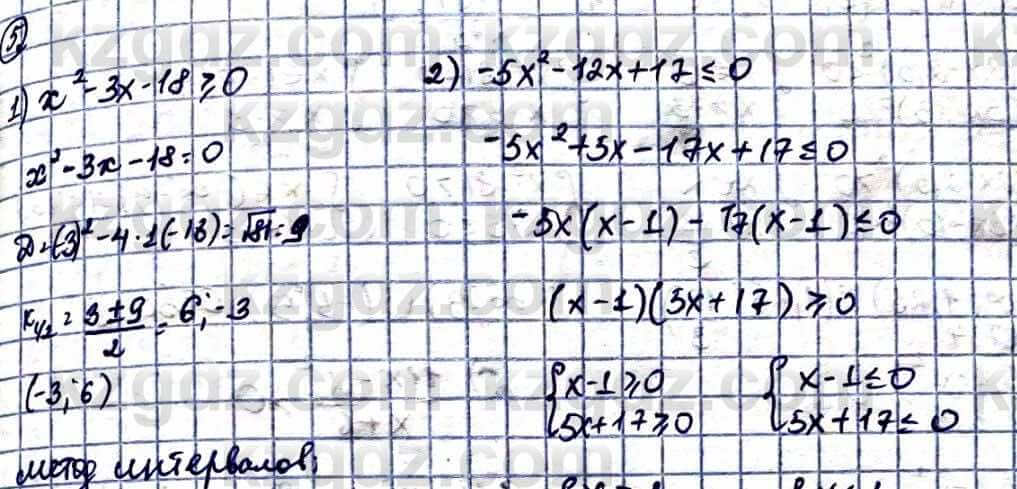 5)
1) x² - 3x - 18 ≥ 0
x² - 3x - 18 = 0
D = (-3)² - 4 · 1(-18) = √81 = 9
x₁/₂ = (3 ± 9)/2 = 6; -3
(-3; 6)
метод интервалов;
2) -5x² - 12x + 17 ≤ 0
-5x² + 5x - 17x + 17 ≤ 0
-5x(x - 1) - 17(x - 1) ≤ 0
(x - 1)(5x + 17) ≥ 0
{x - 1 ≥ 0 {x - 1 ≤ 0
{5x + 17 ≥ 0 {5x + 17 ≤ 0
kzgdz.com